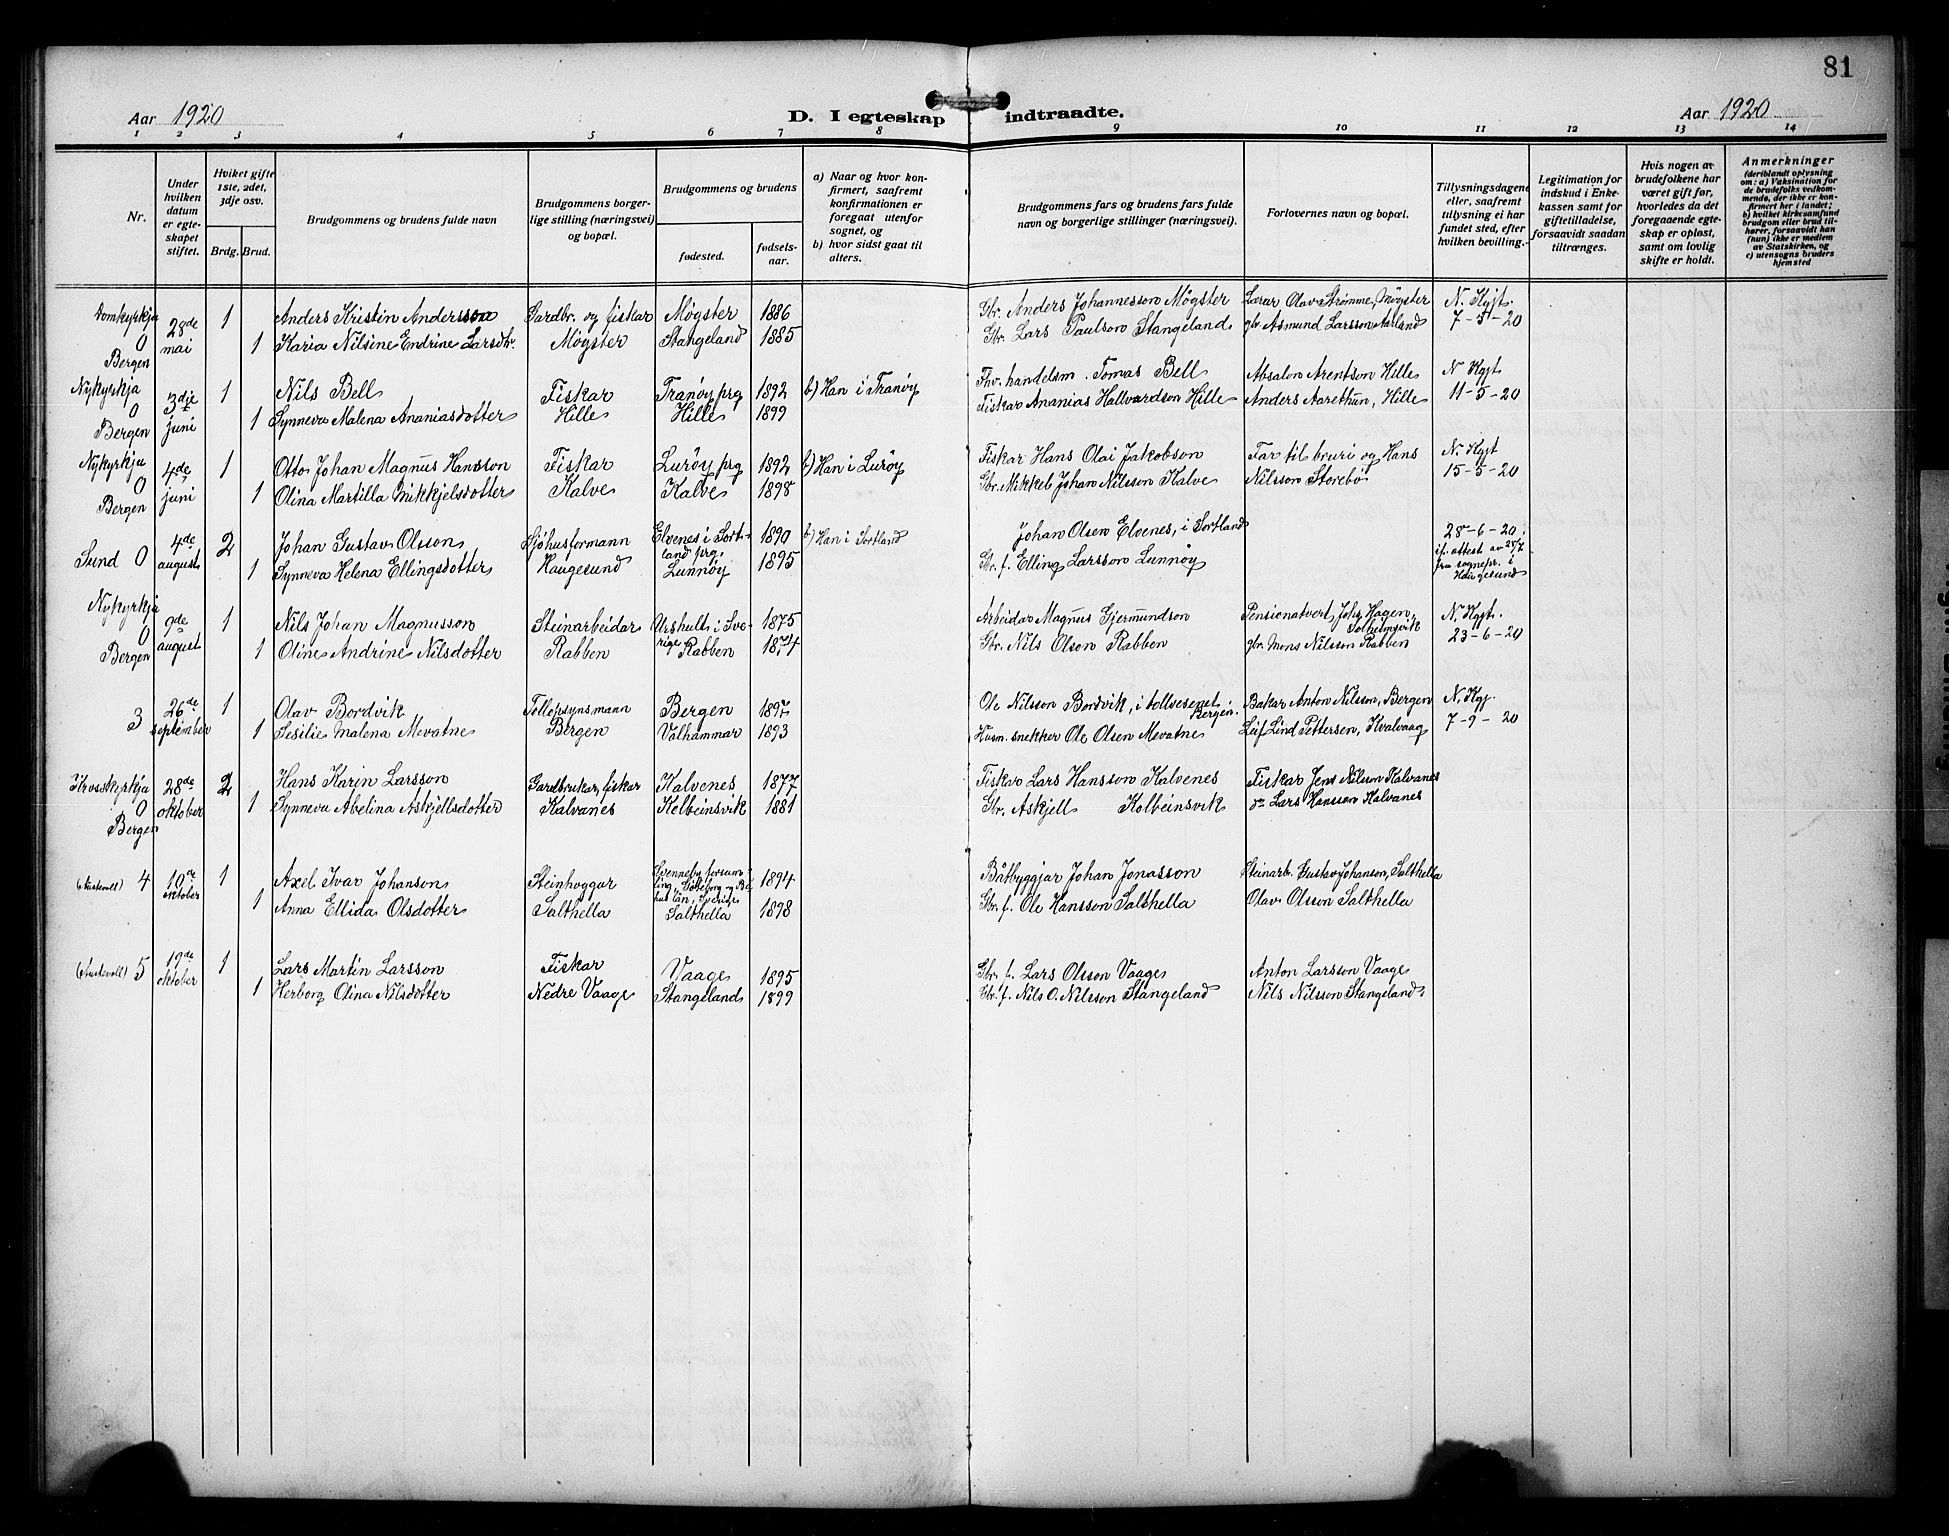 81
Aar 1920
D. I egteskap indtraadte.
Aar 1920
1 2 3 4 5 6 7 8 9 10 11 12 13 14
Nr.
Under hvilken datum er egteskapet stiftet.
Hviket gifte 1ste, 2det, 3dje osv.
Brdg. Brud.
Brudgommens og brudens fulde navn
Brudgommens borgerlige stilling (næringsvei) og bopæl.
Brudgommens og brudens
fødested.
fødselsaar.
a) Naar og hvor konfirmert, saafremt konfirmationen er foregaat utenfor sognet, og
b) hvor sidst gaat til alters.
Brudgommens fars og brudens fars fulde navn og borgerlige stillinger (næringsvei).
Forlovernes navn og bopæl.
Tillysningsdagene eller, saafremt tillysning ei har fundet sted, efter hvilken bevilling.
Legitimation for indskud i Enkekassen samt for giftetilladelse, forsaavidt saadan tiltrænges.
Hvis nogen av brudefolkene har været gift før, hvorledes da det foregaaende egteskap er opløst, samt om lovlig skifte er holdt.
Anmerkninger (deriblandt oplysning om: a) Vaksination for de brudefolks vedkommende, der ikke er konfirmert her i landet; b) hvilket kirkesamfund brudgom eller brud tilhører, forsaavidt han (hun) ikke er medlem av Statskirken, og c) utensogns bruders hjemsted
Domkyrkja 0 Bergen 28de mai 1 Anders Kristin Andersson Gardbr. og fiskar Møgster 1886 Gbr. Anders Johannesson Møgster Lærar Olav Strømme, Møgster N. Kgjt.
1 Karia Nilsine Endrine Larsdtr. Møgster Stangeland 1885 Gbr. Lars Paulson Stangeland gbr. Asmund Larsson Aarland 7-5-20
Nykyrkja 0 Bergen 3dje juni 1 Nils Bell Fiskar Tranøy prg 1892 b) Han i Tranøy Fhv. handelsm. Tomas Bell Absalon Arentson Hille N. Kgjt
1 Synneva Malena Ananiasdotter Hille Hille 1899 Fiskar Ananias Hallvardson Hille Anders Aarethun, Hille 11-5-20
Nykyrkja 0 Bergen 4de juni 1 Otto Johan Magnus Hansson Fiskar Lurøy prg 1892 b) Han i Lurøy Fiskar Hans Olai Jakobson Far til bruri og Hans N. Kgjt
1 Olina Martilla Mikkjelsdotter Kalve Kalve 1898 Gbr. Mikkel Johan Nilsson Kalve Nilsson Storebø 15-5-20
Sund 0 4de august 2 Johan Gustav Olsson Sjøhusformann Elvenes i Sortland prg. 1890 b) Han i Sortland Johan Olsen Elvenes, i Sortland 28-6-20
1 Synneva Helena Ellingsdotter Haugesund Lunnøy 1895 Gbr. f. Elling Larsson Lunnøy if. attest av 28/7 fra sognepr. i Haugesund
Nykyrkja 0 Bergen 9de august 1 Nils Johan Magnusson Steinarbeidar Urshult i Sverige 1875 Arbeidar Magnus Gjermundson Pensionatvert Johs Hagen, Solheimsvik N. Kgjt.
1 Oline Andrine Nilsdotter Rabben Rabben 1874 Gbr. Nils Olson Rabben gbr. Mons Nilsson Rabben 23-6-20
3 26de september 1 Olav Bordvik Tollopsynsmann Bergen 1897 Ole Nilsson Bordvik, i tollvesenet Bergen. Bakar Anton Nilsson, Bergen N. Kgj.
1 Sesilie Malena Mevatne Bergen Valhammar 1893 Husm. snekker Ole Olsen Mevatne Leif Lind Pettersen, Kvalvaag 7-9-20
Krosskyrkja 0 Bergen 28de oktober 2 Hans Karin Larsson Gardbrukar, fiskar Kalvenes 1877 Fiskar Lars Hansson Kalvenes Fiskar Jens Nilsson Kalvanes
1 Synneva Abelina Askjellsdotter Kalvanes Kolbeinsvik 1881 Gbr. Askjell Kolbeinsvik Lars Hansson Kalvanes
(Austevoll) 4 10de oktober 1 Axel Ivar Johanson Steinhoggar Svenneby forsamling, Göteborg og Bohus län, Sverige 1894 Båtbyggjar Johan Jonasson Steinarb. Gustav Johanson, Salthella
1 Anna Ellida Olsdotter Salthella Salthella 1898 Gbr. f. Ole Hansson Salthella Olav Olsson Salthella
(Austevoll) 5 19de oktober 1 Lars Martin Larsson Fiskar Vaage 1895 Gbr. f. Lars Olsson Vaage Anton Larsson Vaage
1 Herborg Olina Nilsdotter Nedre Vaage Stangeland 1899 Gbr. f. Nils O. Nilsson Stangeland Nils Nilsson Stangeland